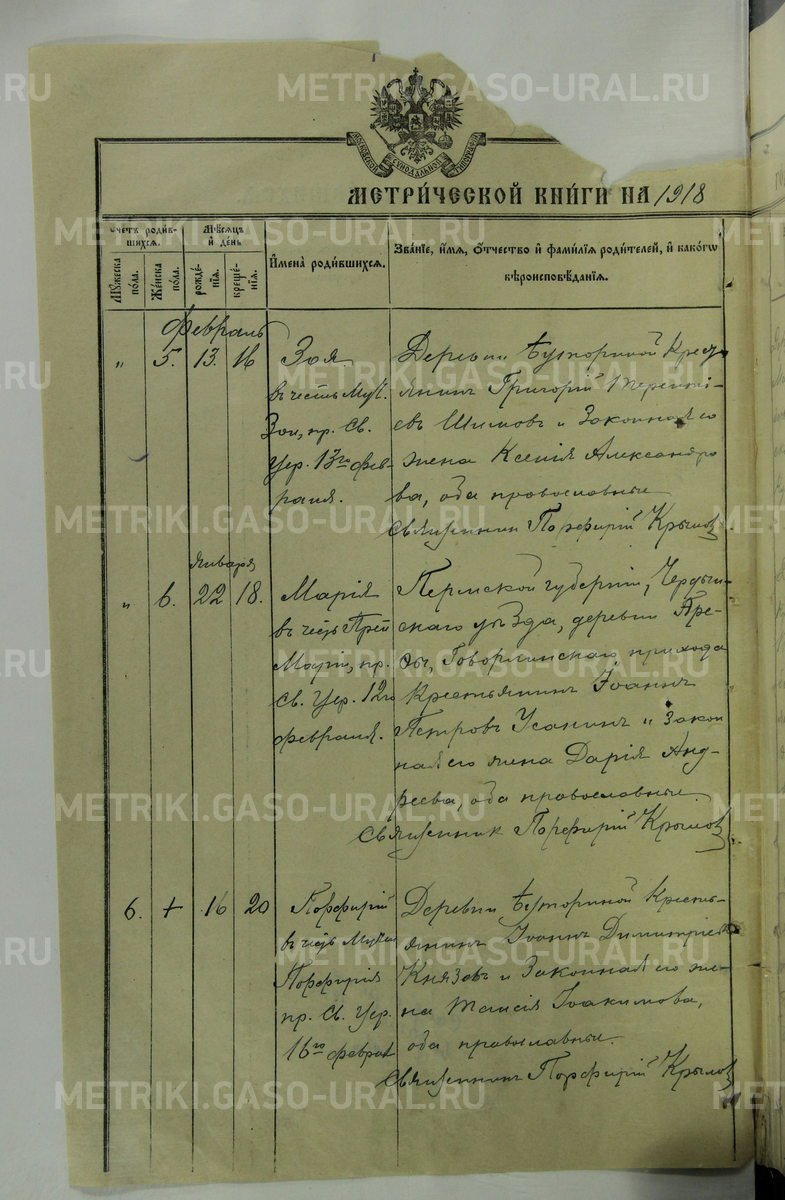 METRIKI.GASO-URAL.RU
МОСКОВСКОЙ СѴНОДАЛЬНОЙ ТИПОГРАФІИ
МЕТРИ́ЧЕСКОЙ КНИ́ГИ НА 1918
Счетъ роди́вшихся.
Мꙋ́жеска по́ла.
Же́нска по́ла.
Мѣ́сяцъ и҆ де́нь
рожде́нїя.
креще́нїя.
И҆мена̀ роди́вшихся.
Зва́нїе, и҆́мя, ѻ҆́тчество и҆ фами́лїя роди́телей, и҆ како́гѡ
вѣроисповѣ́данїя.
Февраль
" 5. 13. 16
Зоя
въ честь Муч.
Зои, пр. Св.
Цер. 13го фев-
раля.
Деревни Буториной Крест
янинъ Григорій Терентi-
евъ Шимовъ и Законная его
жена Ксенія Александро
ва, оба православные
Священникъ Порфирій Крыловъ
Января
" 6. 22 18.
Марія
въ честь Преп
Маріи, пр.
Св. Цер. 12го
февраля.
Пермской губерніи, Чердын-
скаго уѣзда, деревни
Говорливскаго прихода
Крестьянинъ Іоаннъ
Петровъ Усанинъ и Закон
ная его жена Дарія Анд-
реева, оба православные.
Священник Порфирій Крыловъ
6. + 16 20
Порфирій
въ честь Муч
Порфирія
пр. Св. Цер.
16го феврал
Деревни Буториной Кресть-
янинъ Іоаннъ Димитріевъ
Князевъ и Законная его же-
на Таисія Іоакимова,
оба православные.
Священникъ Порфирій Крыловъ